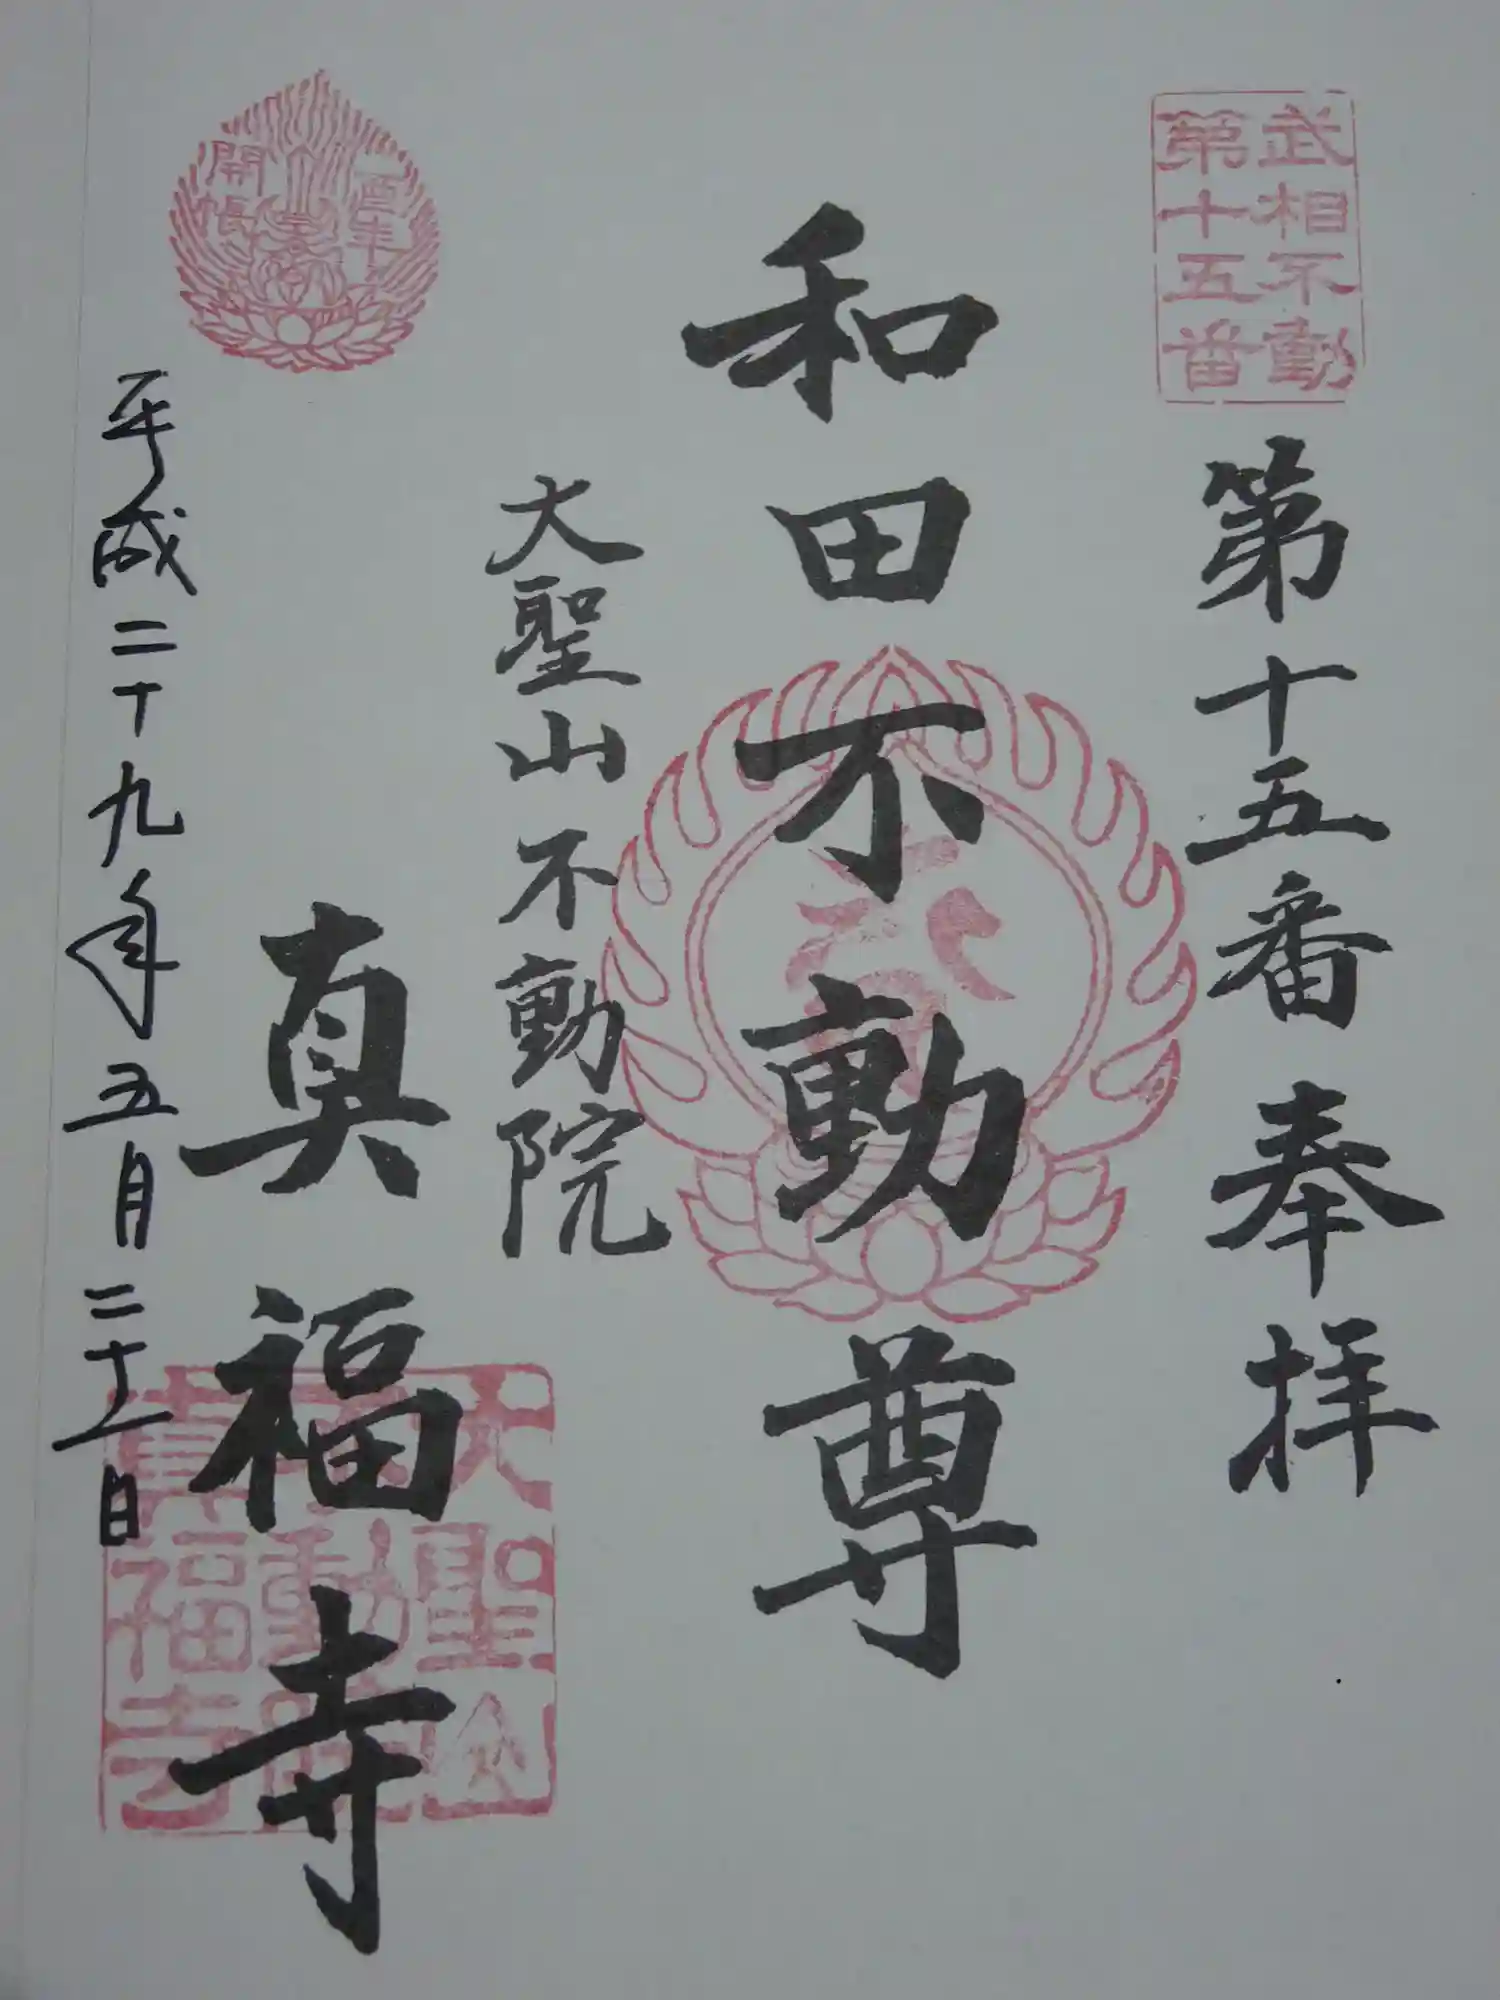 武相不動
第十五番
第十五番奉拝
和田不動尊
大聖山不動院
真福寺
酉年
開帳
平成二十九年五月二十一日
大聖山
不動院
真福寺